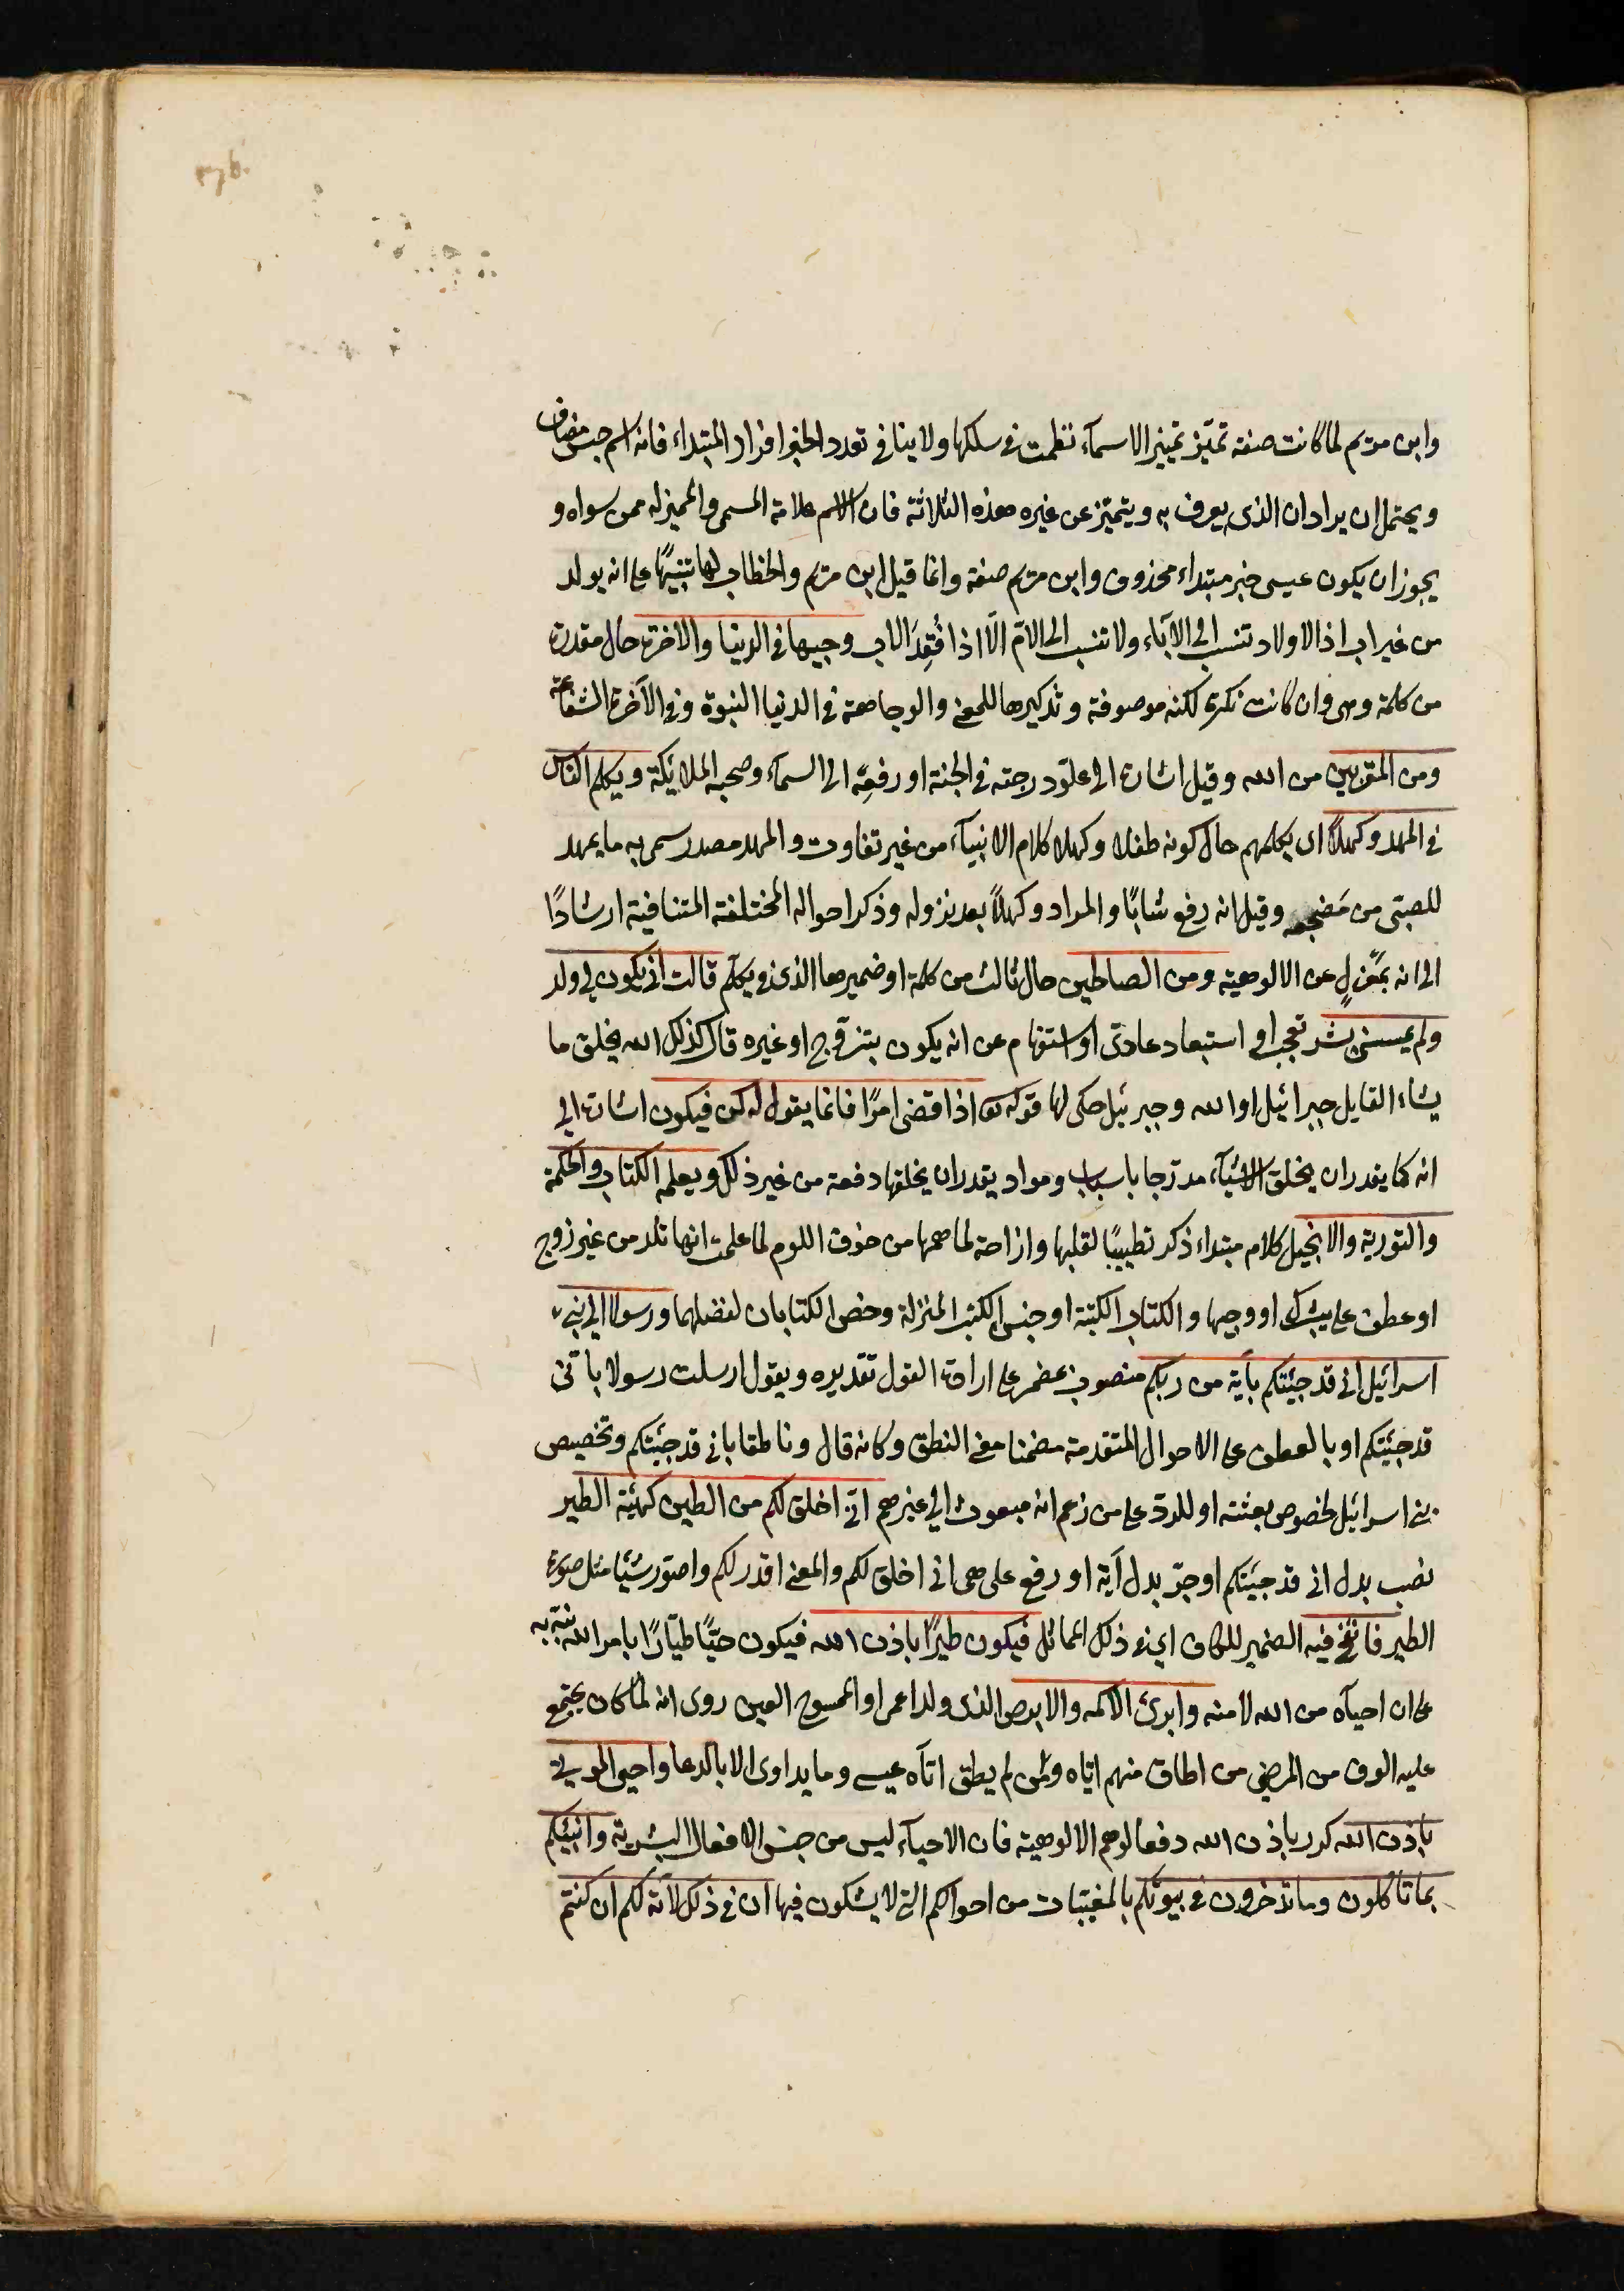 وابن مريم لما كانت صفة تميّز تمييز الاسمآء نظمت في سلكها ولا ينافي تعدد الخبر افراد المبتداء فانه اسم جنس مضاف
ويحتمل ان يراد ان الذى يعرف به ويتميّز عن غيره هذه الثلاثة فان الاسم علامة المسمى والمميز له ممن سواه و
يجوز ان يكون عيسى خبر مبتداء محذوف وابن مريم صفة وانما قيل ابن مريم والخطاب لها تنبيهًا على انه يولد
من غير اب اذ الاولاد تنسب الى الآباء ولا تنسب الى الامّ الّا اذا فُقِدَ الاب وجيها في الدنيا والاخرة حال مقدرة
من كلمة وهى وان كانت نكرة لكنه موصوفة وتذكيرها للمعنى والوجاهة في الدنيا النبوة وفي الآخرة الشفاعة
ومن المقربين من الله وقيل اشارة الى علوّ درجته في الجنة او رفعِه الى السمآء وصحبه الملائكة ويكلم الناس
في المهد وكهلًا اى يكلمهم حال كونه طفلا وكهلا كلام الانبيآء من غير تفاوت والمهد مصدر سمى به ما يمهد
للصبّى من مَضجعه وقيل انه رفع شابًا والمراد وكهلًا بعد نزوله وذكر احواله المختلفة المتنافية ارشادًا
الى انه بمَعْزِلٍ عن الالوهية ومن الصالحين حال ثالث من كلمة او ضميرها الذى في يكلّم قالت انى يكون لي ولد
ولم يمسسني بشر تعجب او استبعاد عادىّ او استفهام عن انه يكون بتزوّج او غيره قال كذلك الله يخلق ما
يشاء القايل جبرائيل او الله وجبرئيل حكى لها قوله تعا اذا قضى امرًا فانما يقول له كن فيكون اشارة الى
انه كما يقدر ان يخلق الاشيآء مدرّجا باسباب ومواد يقدر ان يخلقها دفعة من غير ذلك ويعلمه الكتاب والحكمة
والتورية والانجيل كلام مبتداء ذكر تطييبًا لقلبها وازاحة لما همها من خوف اللوم لما علمت انها تلد من غير زوج
او عطف على يبشرك او وجيها والكتاب الكتبة او جنس الكتب المنزلة وخص الكتابان لفضلهما ورسولا الى بني
اسرائيل انى قد جئتكم بآية من ربكم منصوب بمضمر على ارادة القول تقديره ويقول ارسلت رسولا باّنى
قد جئتكم او بالعطف على الاحوال المتقدمة مضمنا معنى النطق وكانه قال وناطقا بانى قد جئتكم وتخصيص
بني اسرائيل لخصوص بعثته او للردّ على من زعم انه مبعوث الى غيرهم انّى اخلق لكم من الطين كهيئة الطير
نصب بدل انى قد جئتكم او جرّ بدل آية او رفع على هى انى اخلق لكم والمعنى اقدر لكم واصوّر شيًا مثل صورة
الطير فانفخ فيه الضمير للكاف اى في ذلك المماثل فيكون طيرًا باذن الله فيكون حيًّا طيّارًا بامر الله نبّه به
على ان احيآه من الله لا منه وابرئ الاكمه والابرص الذى ولد اعمى او الممسوح العين روى انه لما كان يجتمع
عليه الوف من المرضى من اطاق منهم اتاه ومن لم يطق اتآه عيسى وما يداوى الا بالدعا واحيى الموتى
باذن الله كرر باذن الله دفعا لوهم الالوهية فان الاحيآء ليس من جنس الافعال البشرية وانبئكم
بما تاكلون وما تدخرون في بيوتكم بالمغيبات من احوالكم التى لا يشكون فيها ان في ذلك لآية لكم ان كنتم